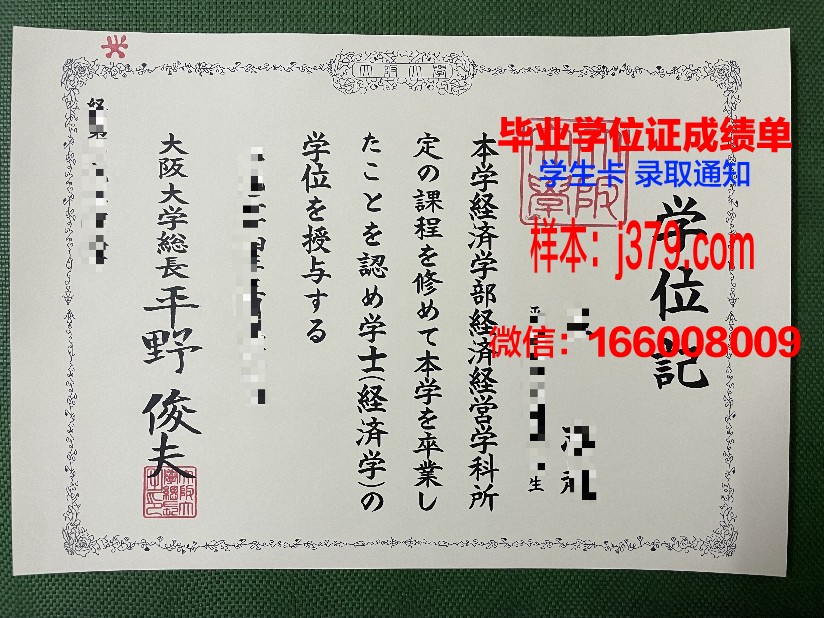 毕业学位证成绩单
学生卡 录取通知
样本：j379.com
微信：166008009
学位記
生
本学経済学部経済経営学科所
定の課程を修めて本学を卒業し
たことを認め学士(経済学)の
学位を授与する
大阪大学総長 平野 俊夫